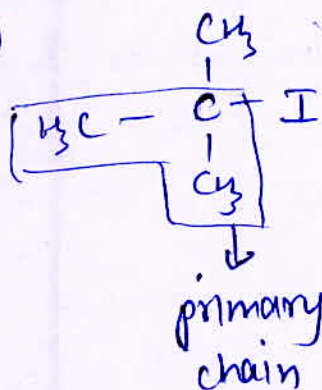 )
CH3
H3C - C - I
CH3
primary
chain